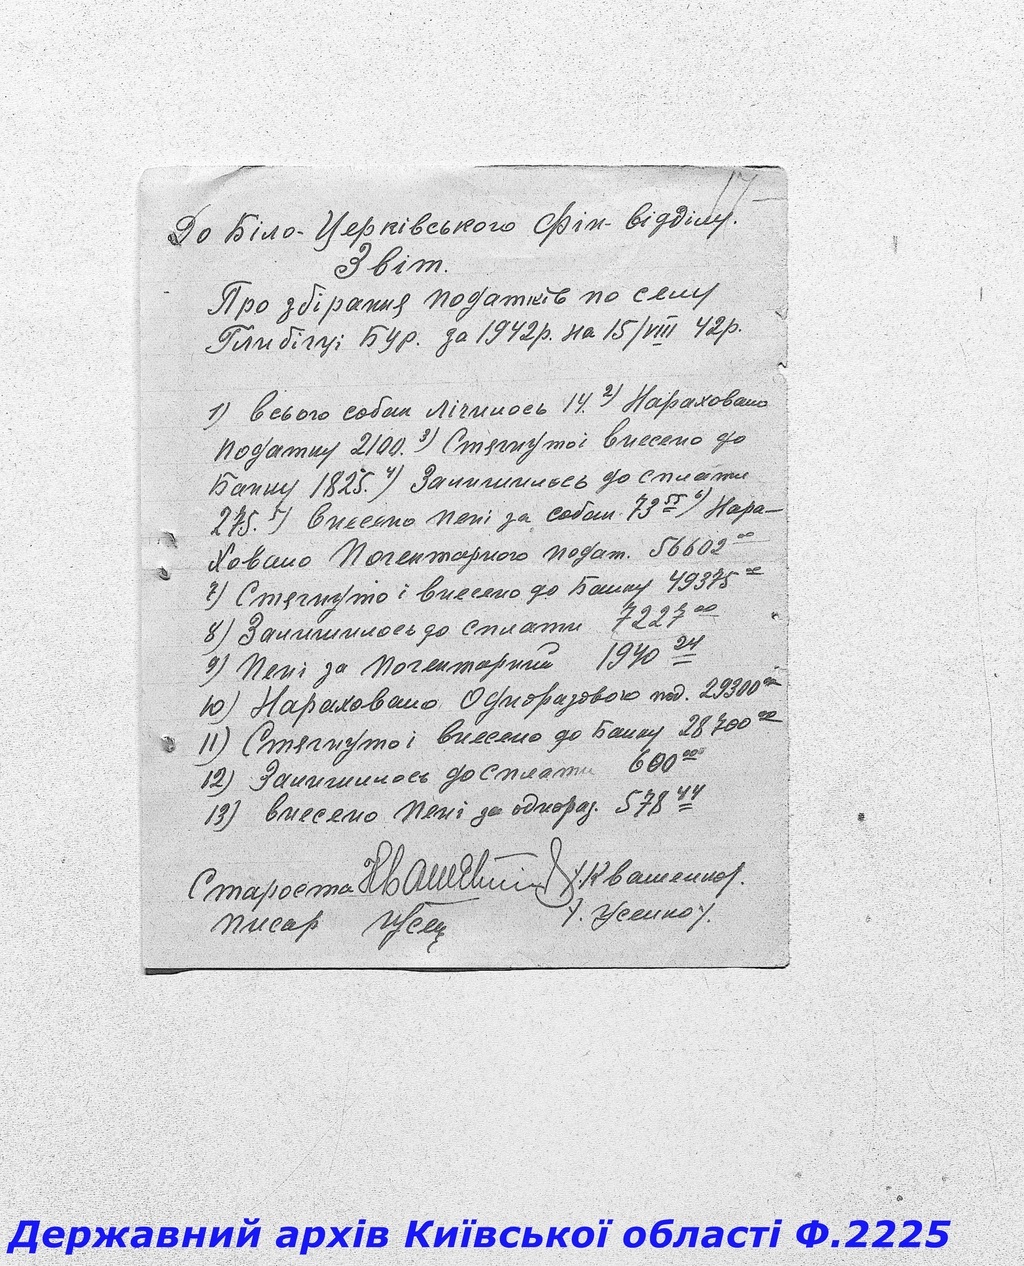 17
До Біло-Церківського Фін-відділу.
Звіт.
Про збірання податків по селу
Глибічці Бур. за 1942р. на 15/VIII 42р.
1) всього собак лічилось 14. 2) Нараховано
податку 2100. 3) Стягнуто і внесено до
Банку 1825. 4) Залишилось до сплати
275. 5) внесено пені за собак 73 55 6) Нара-
ховано Погектарного подат. 56602 00
7) Стягнуто і внесено до Банку 49375 00
8) Залишилось до сплати 7227 00
9) Пені за погектарний 1940 24
10) Нараховано Одноразового под. 29300 00
11) Стягнуто і внесено до Банку 28700 00
12) Залишилось до сплати 600 00
13) внесено пені за однораз. 578 44
Староста /.Квашенко/.
Писар /.Усенко/.
Державний архів Київської області Ф.2225